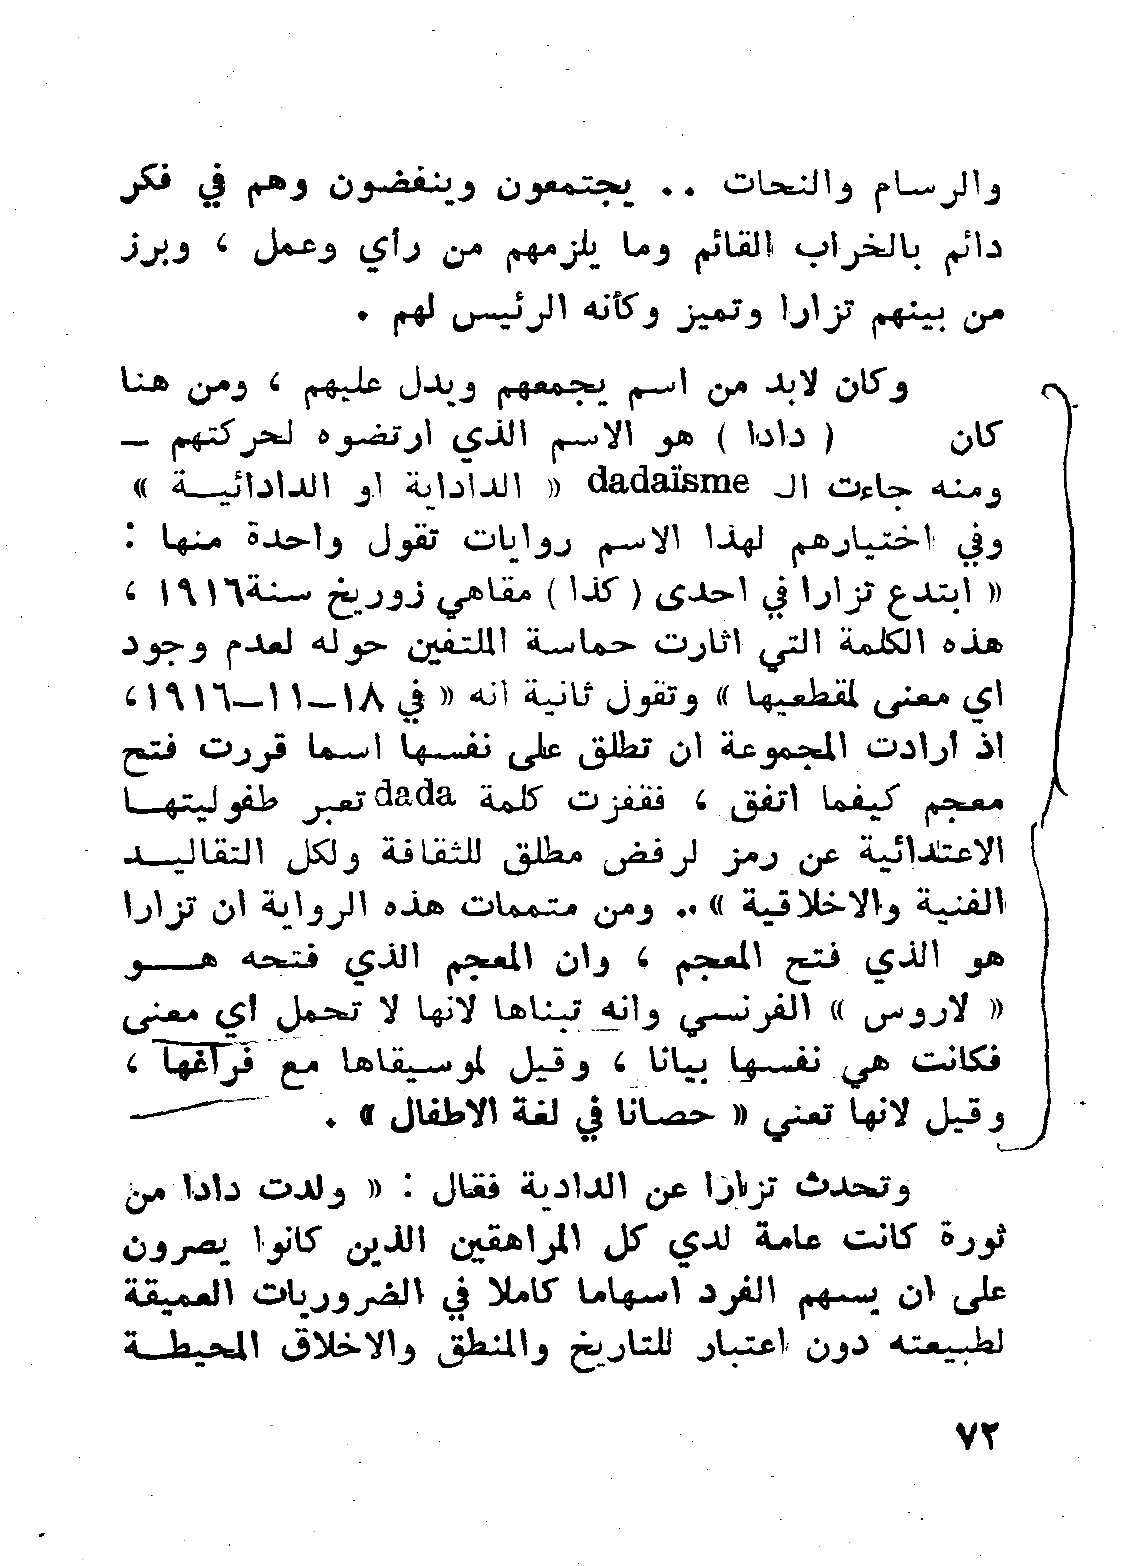 والرسام والنحات . . يجتمعون وينفضون وهم في فكر
دائم بالخراب القائم وما يلزمهم من رأي وعمل ، وبرز
من بينهم تزارا وتميز وكأنه الرئيس لهم .
وكان لابد من اسم يجمعهم ويدل عليهم ، ومن هنا
كان ( دادا ) هو الاسم الذي ارتضوه لحركتهم –
ومنه جاءت الـ dadaïsme « الداداية او الدادائيــة »
وفي اختيارهم لهذا الاسم روايات تقول واحدة منها :
« ابتدع تزارا في احدى ( كذا ) مقاهي زوريخ سنة١٩١٦ ،
هذه الكلمة التي اثارت حماسة الملتفين حوله لعدم وجود
اي معنى لمقطعيها » وتقول ثانية انه « في ١٨–١١–١٩١٦،
اذ أرادت المجموعة ان تطلق على نفسها اسما قررت فتح
معجم كيفما اتفق ، فقفزت كلمة dada تعبر طفوليتهــا
الاعتدائية عن رمز لرفض مطلق للثقافة ولكل التقاليــد
الفنية والاخلاقية » .. ومن متممات هذه الرواية ان تزارا
هو الذي فتح المعجم ، وان المعجم الذي فتحه هــــو
« لاروس » الفرنسي وانه تبناها لانها لا تحمل اي معنى
فكانت هي نفسها بيانا ، وقيل لموسيقاها مع فراغها ،
وقيل لانها تعني « حصانا في لغة الاطفال » .
وتحدث تزارا عن الدادية فقال : « ولدت دادا من
ثورة كانت عامة لدي كل المراهقين الذين كانوا يصرون
على ان يسهم الفرد اسهاما كاملا في الضروريات العميقة
لطبيعته دون اعتبار للتاريخ والمنطق والاخلاق المحيطــة
٧٢